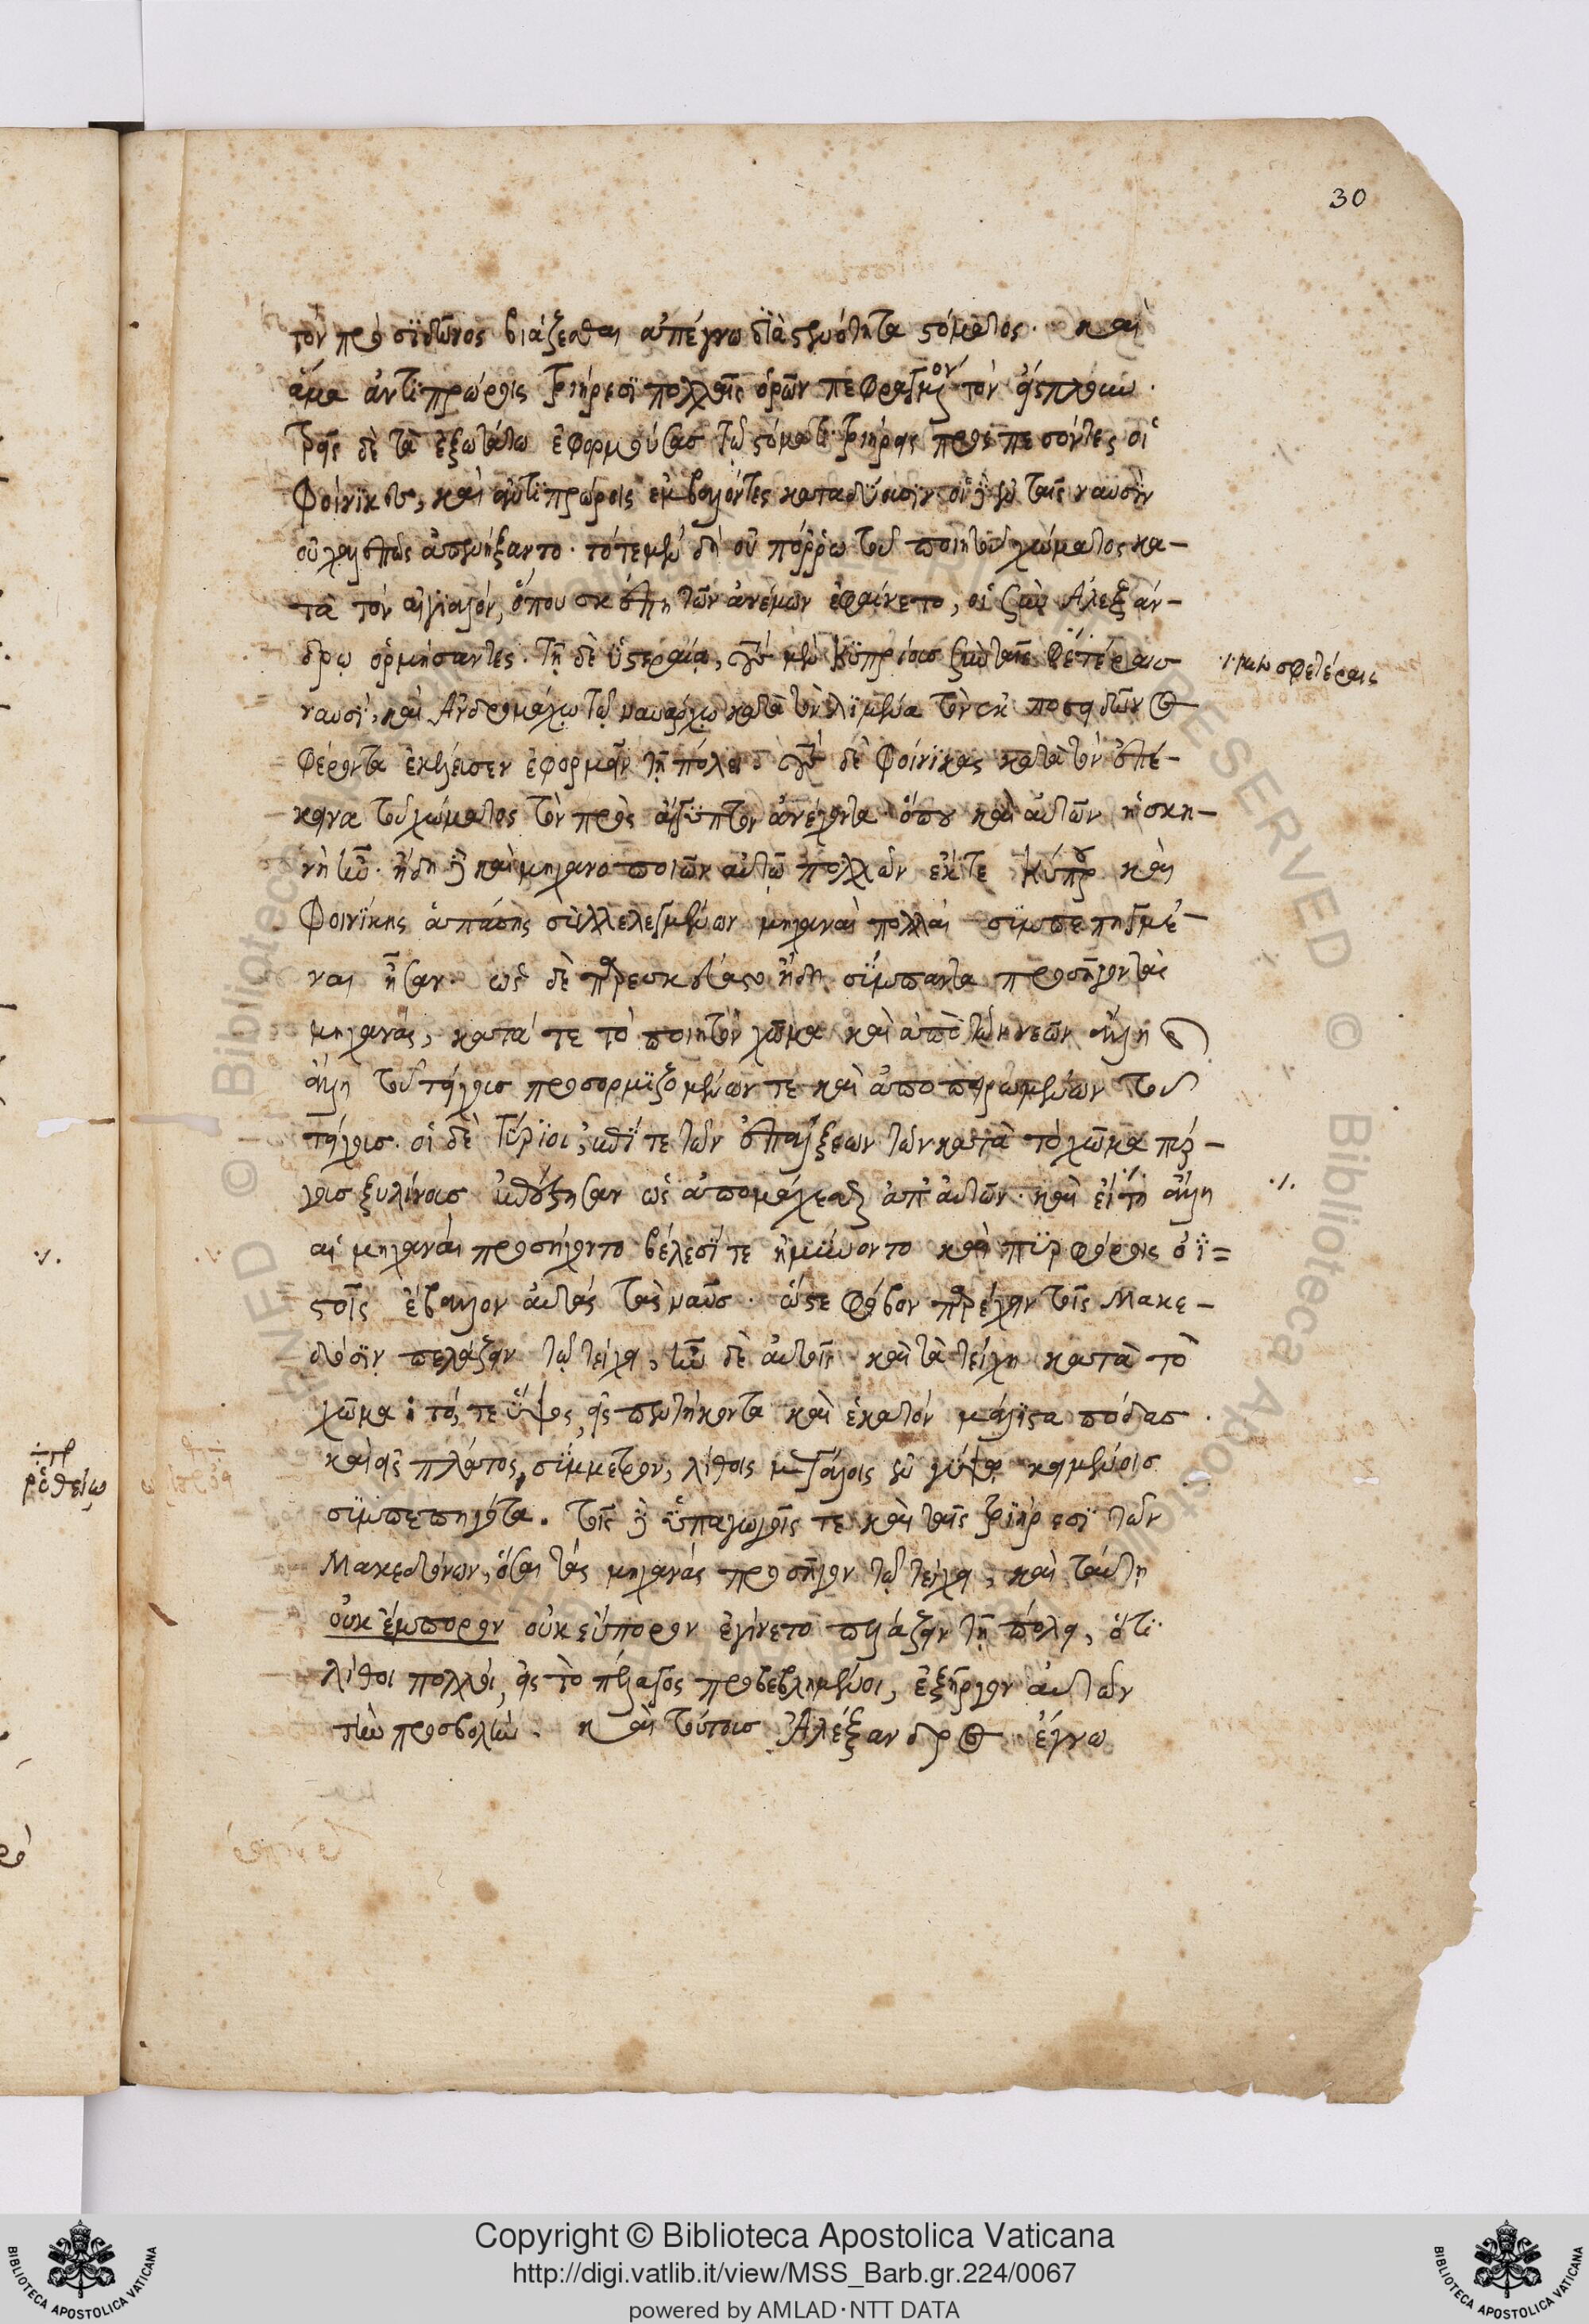 30
τὸν πρὸ σϊδῶνος βιάζεσθαι ἀπέγνω διὰ στενότητα στόματος. καὶ
ἅμα ἀντϊπρώροις τριήρεσϊ πολλαῖς ὁρῶν πεφραγμένον τὸν εἴσπλουν.
τρεῖς δὲ τὰ ἐξωτάτω ἐφορμούσασ τῷ στόματι τριήρεις προσπεσόντες οἱ
Φοίνικες, καὶ ἀντιπρώροις ἐμβαλόντες καταδύουσϊν· οἱ δὲ ἐν ταῖς ναυσὶν
οὐ χαλεπῶς ἀπενήξαντο. τότε μὲν δὴ οὐ πόρρω τοῦ ποιητοῦ χώματος κα-
τὰ τὸν αἰγιαλὸν, ὅπου σκέπη τῶν ἀνέμων ἐφαίνετο, οἱ σὺν Ἀλεξάν-
δρῳ ὁρμήσαντες. τῇ δὲ ὑστεραίᾳ, τοὺς μὲν Κυπρίουσ σὺν ταῖς φετέραισ
·/· μὲν σφετέραις
ναυσϊ, καὶ Ἀνδρομάχῳ τῷ ναυάρχῳ κατὰ τὸν λϊμένα τὸν ἐκ ποσειδῶνος
φέροντα ἐκέλευσεν ἐφορμεῖν τῇ πόλει· τοὺς δὲ Φοίνϊκας κατὰ τὸν ἐπέ-
κεινα τοῦ χώματος τὸν πρὸς αἴγυπτον ἀνέχοντα· ὅπου καὶ αὐτῶν ἡ σκη-
νὴ ἦν. ἤδη δὲ καὶ μηχανοποιῶν αὐτῷ πολλῶν ἔκ τε Κύπρου καὶ
Φοινίκης ἁπάσης συλλελεγμένων μηχαναὶ πολλαὶ συμπεπηγμέ-
ναι ἦσαν. ὡς δὲ παρεσκεύαστο ἤδη σύμπαντα προσῆγον τὰς
μηχανάς, κατά τε τὸ ποιητὸν χῶμα καὶ ἀπὸ τῶν νεῶν ἄλλῃ
ἄλλῃ τοῦ τείχουσ προσορμιζομένων τὲ καὶ ἀποπειρωμένων τοῦ
τείχουσ. οἱ δὲ Τύριοι, ἐπί τε τῶν ἐπάλξεων τῶν κατὰ τὸ χῶμα πύρ-
γουσ ξυλίνουσ ἐπέστησαν ὡς ἀπομάχεσθαι ἀπ' αὐτῶν. καὶ εἴ τῃ ἄλλῃ
·/·
αἱ μηχαναὶ προσήγοντο βέλεσϊ τε ἠμύνοντο καὶ πϋρφόροις ὀϊ=
στοῖς ἔβαλλον αὐτὰς τὰς ναῦσ. ὥστε φόβον παρέχειν τοῖς Μακε-
δόσϊν πελάζειν τῷ τείχει, ἦν δὲ αὐτοῖς καὶ τὰ τείχη κατὰ τὸ
χῶμα· τό, τε ὕψος εἰς πεντήκοντα καὶ ἑκατὸν μάλιστα πόδασ.
καὶ εἰς πλάτος, σύμμετρον, λίθοις μεγάλοις ἐν γύψῳ κειμένοισ
συμπεπηγότα. ταῖς δὲ ὑπαγωγοῖς τε καὶ ταῖς τριήρεσϊ τῶν
Μακεδόνων, ὅσαι τὰς μηχανὰς προσῆγον τῷ τείχει, καὶ ταύτῃ
οὐκ ἔμπορον οὐκ εὔπορον ἐγίνετο πελάζειν τῇ πόλει, ὅτι
λίθοι πολλοὶ, εἰς τὸ πέλαγος προβεβλημένοι, ἐξῆργον αὐτῶν
τὴν προσβολὴν. καὶ τούτουσ Ἀλέξανδρος ἔγνω